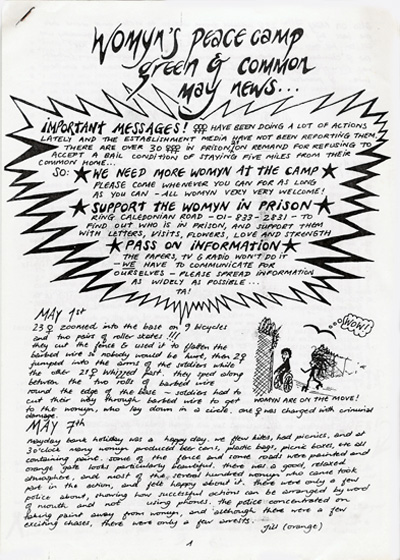 Womyn's peace camp
green & common
may news...
IMPORTANT MESSAGES! ♀♀♀ HAVE BEEN DOING A LOT OF ACTIONS
LATELY AND THE ESTABLISHMENT MEDIA HAVE NOT BEEN REPORTING THEM.
THERE ARE OVER 30 ♀♀♀ IN PRISON/ON REMAND FOR REFUSING TO
ACCEPT A BAIL CONDITION OF STAYING FIVE MILES FROM THEIR
COMMON HOME...
SO: ★ WE NEED MORE WOMYN AT THE CAMP ★
PLEASE COME WHENEVER YOU CAN FOR AS LONG
AS YOU CAN - ALL WOMYN VERY VERY WELCOME!
★ SUPPORT THE WOMYN IN PRISON ★
RING CALEDONIAN ROAD - 01-833-2831 - TO
FIND OUT WHO IS IN PRISON, AND SUPPORT THEM
WITH LETTERS, VISITS, FLOWERS, LOVE AND STRENGTH
★ PASS ON INFORMATION ★
THE PAPERS, TV & RADIO WON'T DO IT
- WE HAVE TO COMMUNICATE FOR
OURSELVES - PLEASE SPREAD INFORMATION
AS WIDELY AS POSSIBLE...
TA!
MAY 1st
23 ♀ zoomed into the base on 9 bicycles
and two pairs of roller skates !!!
they cut the fence & used it to flatten the
barbed wire so nobody would be hurt, then 2♀
jumped into the arms of the soldiers while
the other 21 ♀ whizzed past. they sped along
between the two rolls of barbed wire
round the edge of the base ~ soldiers had to
cut their way through barbed wire to get
to the womyn, who lay down in a circle. one ♀ was charged with criminal
damage.
WOW!
WOMYN ARE ON THE MOVE!
MAY 7th
Mayday bank holiday was a happy day. we flew kites, had picnics, and at
3 o'clock many womyn produced beer cans, plastic bags, picnic boxes, etc all
containing paint. some of the fence and some roads were painted and
orange gate looks particularly beautiful. there was a good, relaxed
atmosphere, and most of the several hundred womyn who came took
part in the action, and felt happy about it. there were only a few
police about, showing how successful actions can be arranged by word
of mouth and not using phones. the police concentrated on
taking paint away from womyn, and although there were a few
exciting chases, there were only a few arrests.
Jill (orange)
1